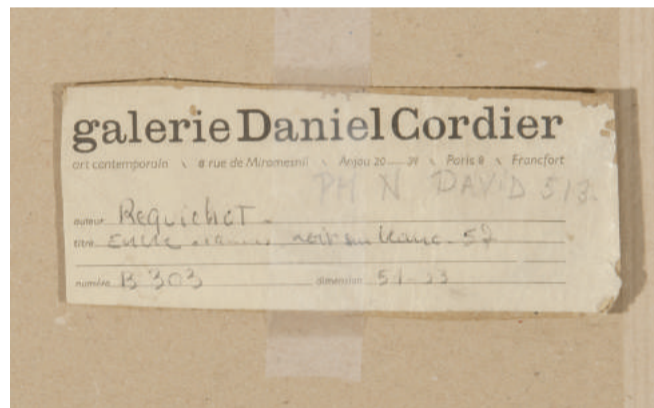 galerie Daniel Cordier
art contemporain \ 8 rue de Miromesnil \ Anjou 20 — 39 \ Paris 8 \ Francfort
PH N DAVID 513.
auteur Requichot.
titre Encre noir sur blanc. 57
numéro B 303 dimension